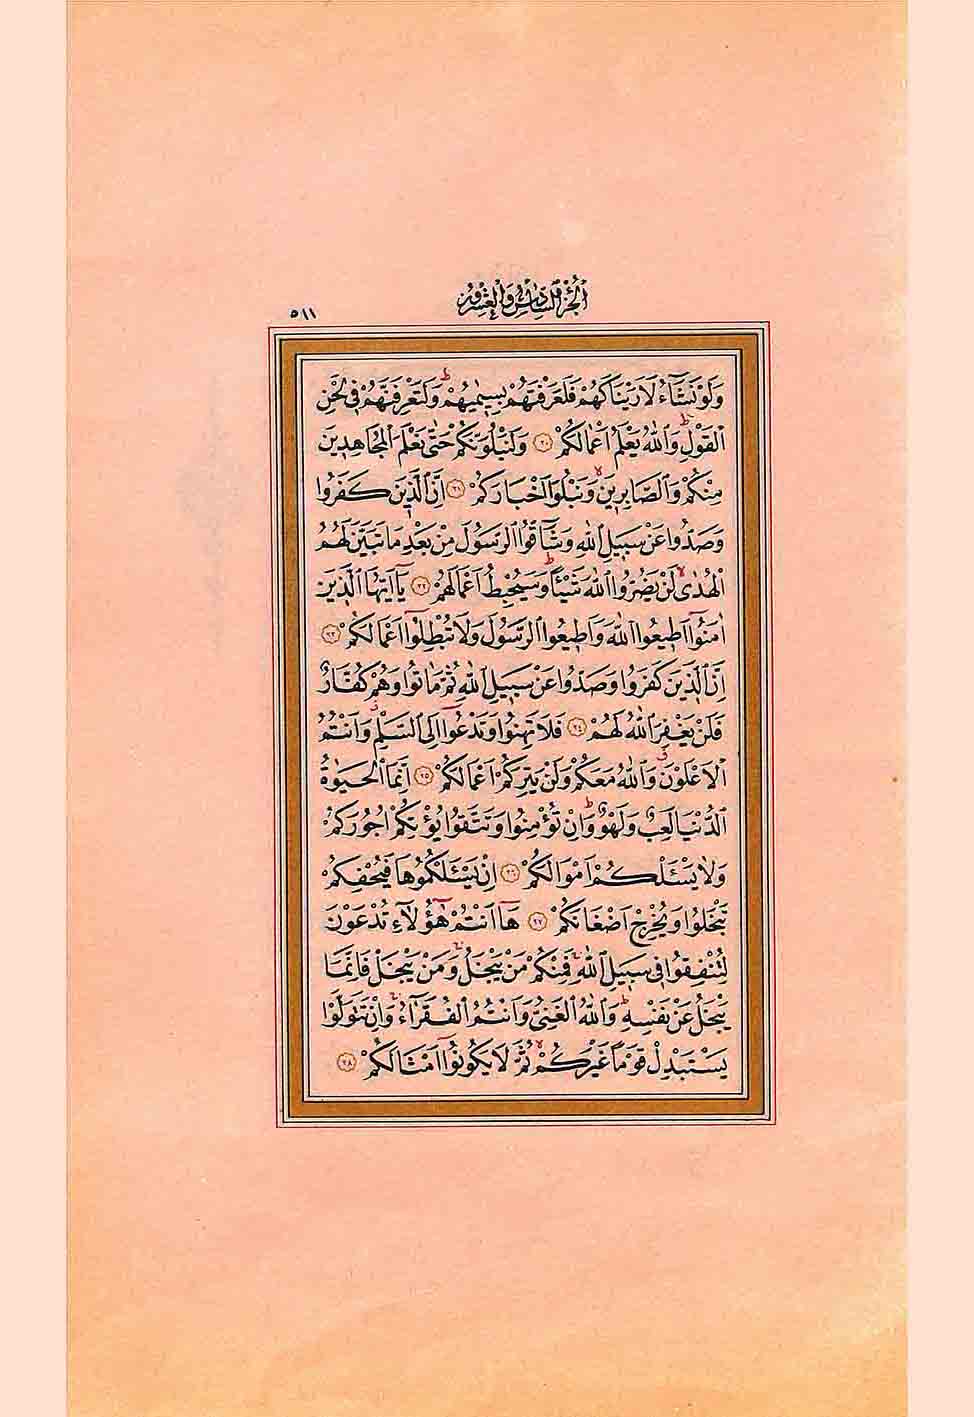 الجزء السادس والعشرون
٥١١
وَلَوْ نَشَٓاءُ لَاَرَيْنَاكَهُمْ فَلَعَرَفْتَهُمْ بِسٖيمٰيهُمْ وَلَتَعْرِفَنَّهُمْ فٖى لَحْنِ
الْقَوْلِ وَاللّٰهُ يَعْلَمُ اَعْمَالَكُمْ ٣٠ وَلَنَبْلُوَنَّكُمْ حَتّٰى نَعْلَمَ الْمُجَاهِدٖينَ
مِنْكُمْ وَالصَّابِرٖينَ وَنَبْلُوَا اَخْبَارَكُمْ ٣١ اِنَّ الَّذٖينَ كَفَرُوا
وَصَدُّوا عَنْ سَبٖيلِ اللّٰهِ وَشَٓاقُّوا الرَّسُولَ مِنْ بَعْدِ مَا تَبَيَّنَ لَهُمُ
الْهُدٰى لَنْ يَضُرُّوا اللّٰهَ شَيْـًٔا وَسَيُحْبِطُ اَعْمَالَهُمْ ٣٢ يَٓا اَيُّهَا الَّذٖينَ
اٰمَنُٓوا اَطٖيعُوا اللّٰهَ وَاَطٖيعُوا الرَّسُولَ وَلَا تُبْطِلُٓوا اَعْمَالَكُمْ ٣٣
اِنَّ الَّذٖينَ كَفَرُوا وَصَدُّوا عَنْ سَبٖيلِ اللّٰهِ ثُمَّ مَاتُوا وَهُمْ كُفَّارٌ
فَلَنْ يَغْفِرَ اللّٰهُ لَهُمْ ٣٤ فَلَا تَهِنُوا وَتَدْعُٓوا اِلَى السَّلْمِ وَاَنْتُمُ
الْاَعْلَوْنَ وَاللّٰهُ مَعَكُمْ وَلَنْ يَتِرَكُمْ اَعْمَالَكُمْ ٣٥ اِنَّمَا الْحَيٰوةُ
الدُّنْيَا لَعِبٌ وَلَهْوٌ وَاِنْ تُؤْمِنُوا وَتَتَّقُوا يُؤْتِكُمْ اُجُورَكُمْ
وَلَا يَسْـَٔلْكُمْ اَمْوَالَكُمْ ٣٦ اِنْ يَسْـَٔلْكُمُوهَا فَيُحْفِكُمْ
تَبْخَلُوا وَيُخْرِجْ اَضْغَانَكُمْ ٣٧ هَٓا اَنْتُمْ هٰٓؤُلَٓاءِ تُدْعَوْنَ
لِتُنْفِقُوا فٖى سَبٖيلِ اللّٰهِ فَمِنْكُمْ مَنْ يَبْخَلُ وَمَنْ يَبْخَلْ فَاِنَّمَا
يَبْخَلُ عَنْ نَفْسِهٖ وَاللّٰهُ الْغَنِىُّ وَاَنْتُمُ الْفُقَرَٓاءُ وَاِنْ تَتَوَلَّوْا
يَسْتَبْدِلْ قَوْمًا غَيْرَكُمْ ثُمَّ لَا يَكُونُٓوا اَمْثَالَكُمْ ٣٨